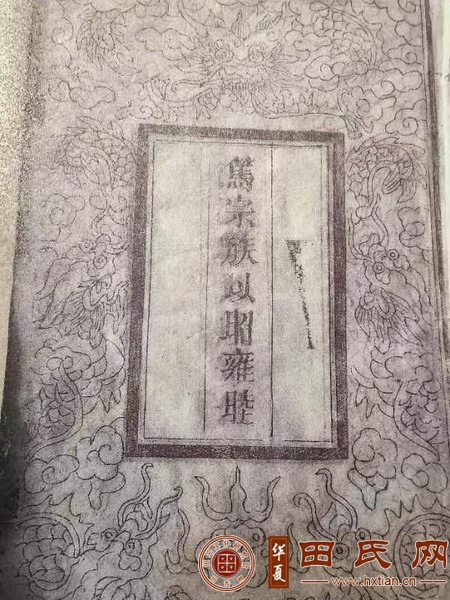 篤宗族以昭雍睦
华夏
田氏网
www.hxtian.cn